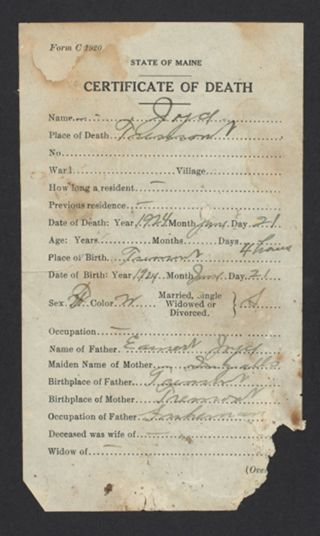 Form C 1920
STATE OF MAINE
CERTIFICATE OF DEATH
Name — Joyd
Place of Death Tremont
No.
Ward Village
How long a resident —
Previous residence —
Date of Death: Year 1924 Month June Day 21
Age: Years Months Days 4 hours
Place of Birth Tremont
Date of Birth: Year 1924 Month June Day 21
Sex Color W Married, Single Widowed or Divorced. } S
Occupation —
Name of Father Earnest Joyd
Maiden Name of Mother
Birthplace of Father Tremont
Birthplace of Mother Tremont
Occupation of Father
Deceased was wife of —
Widow of —
(Over